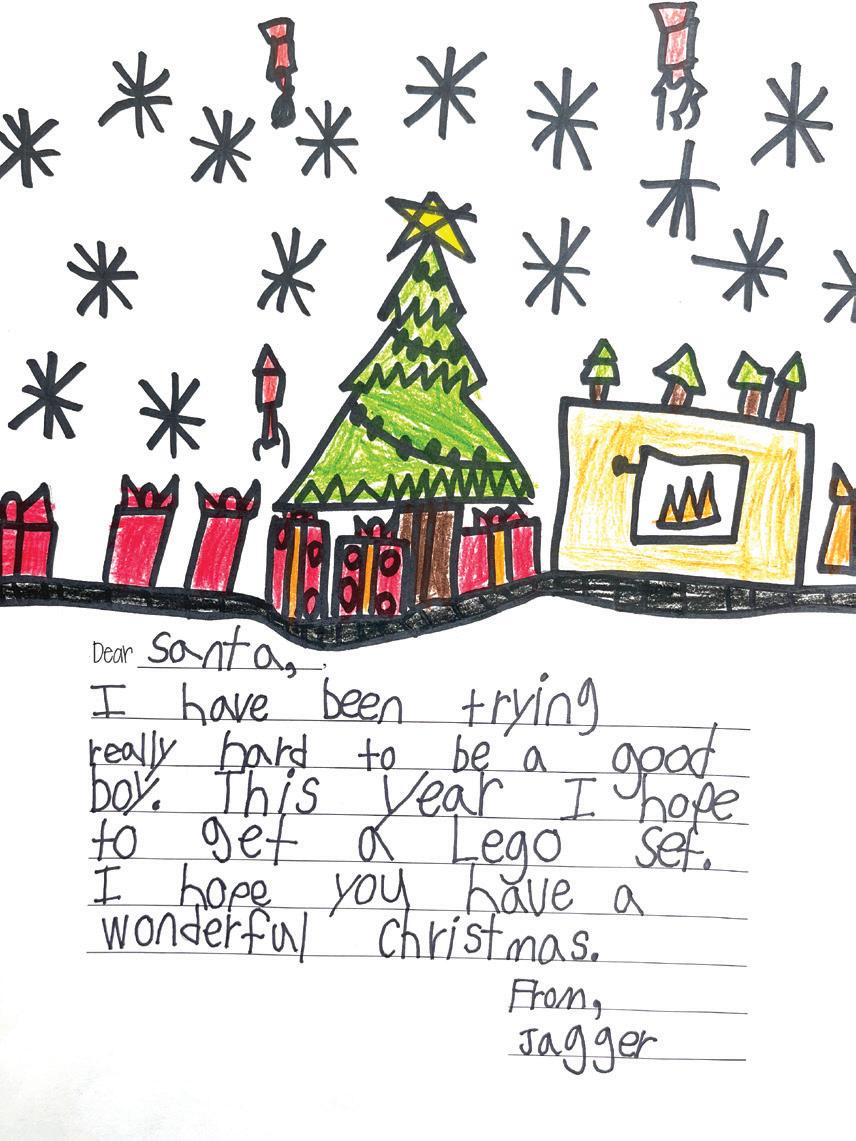 Dear Santa,
I have been trying
really hard to be a good
boy. This year I hope
to get a Lego set.
I hope you have a
wonderful Christmas.
From,
Jagger